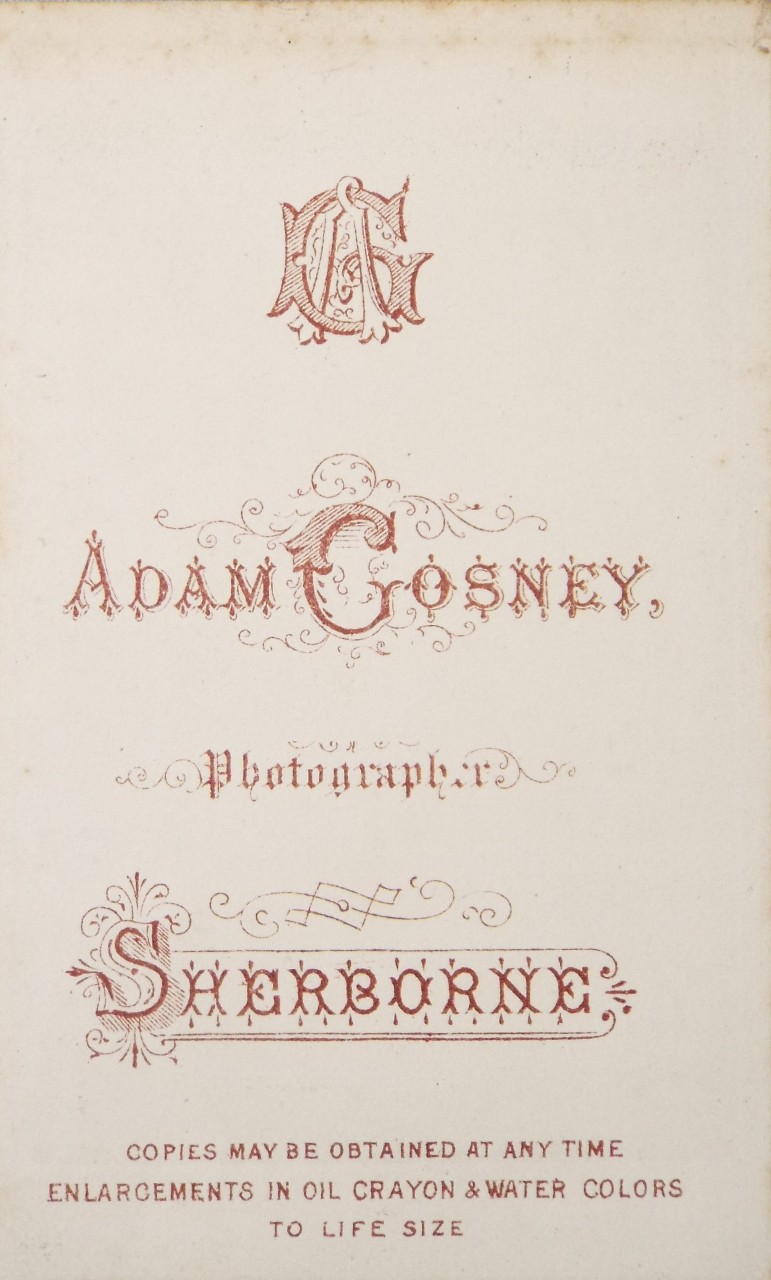 AG
ADAM GOSNEY,
Photographer
SHERBORNE
COPIES MAY BE OBTAINED AT ANY TIME
ENLARGEMENTS IN OIL CRAYON & WATER COLORS
TO LIFE SIZE